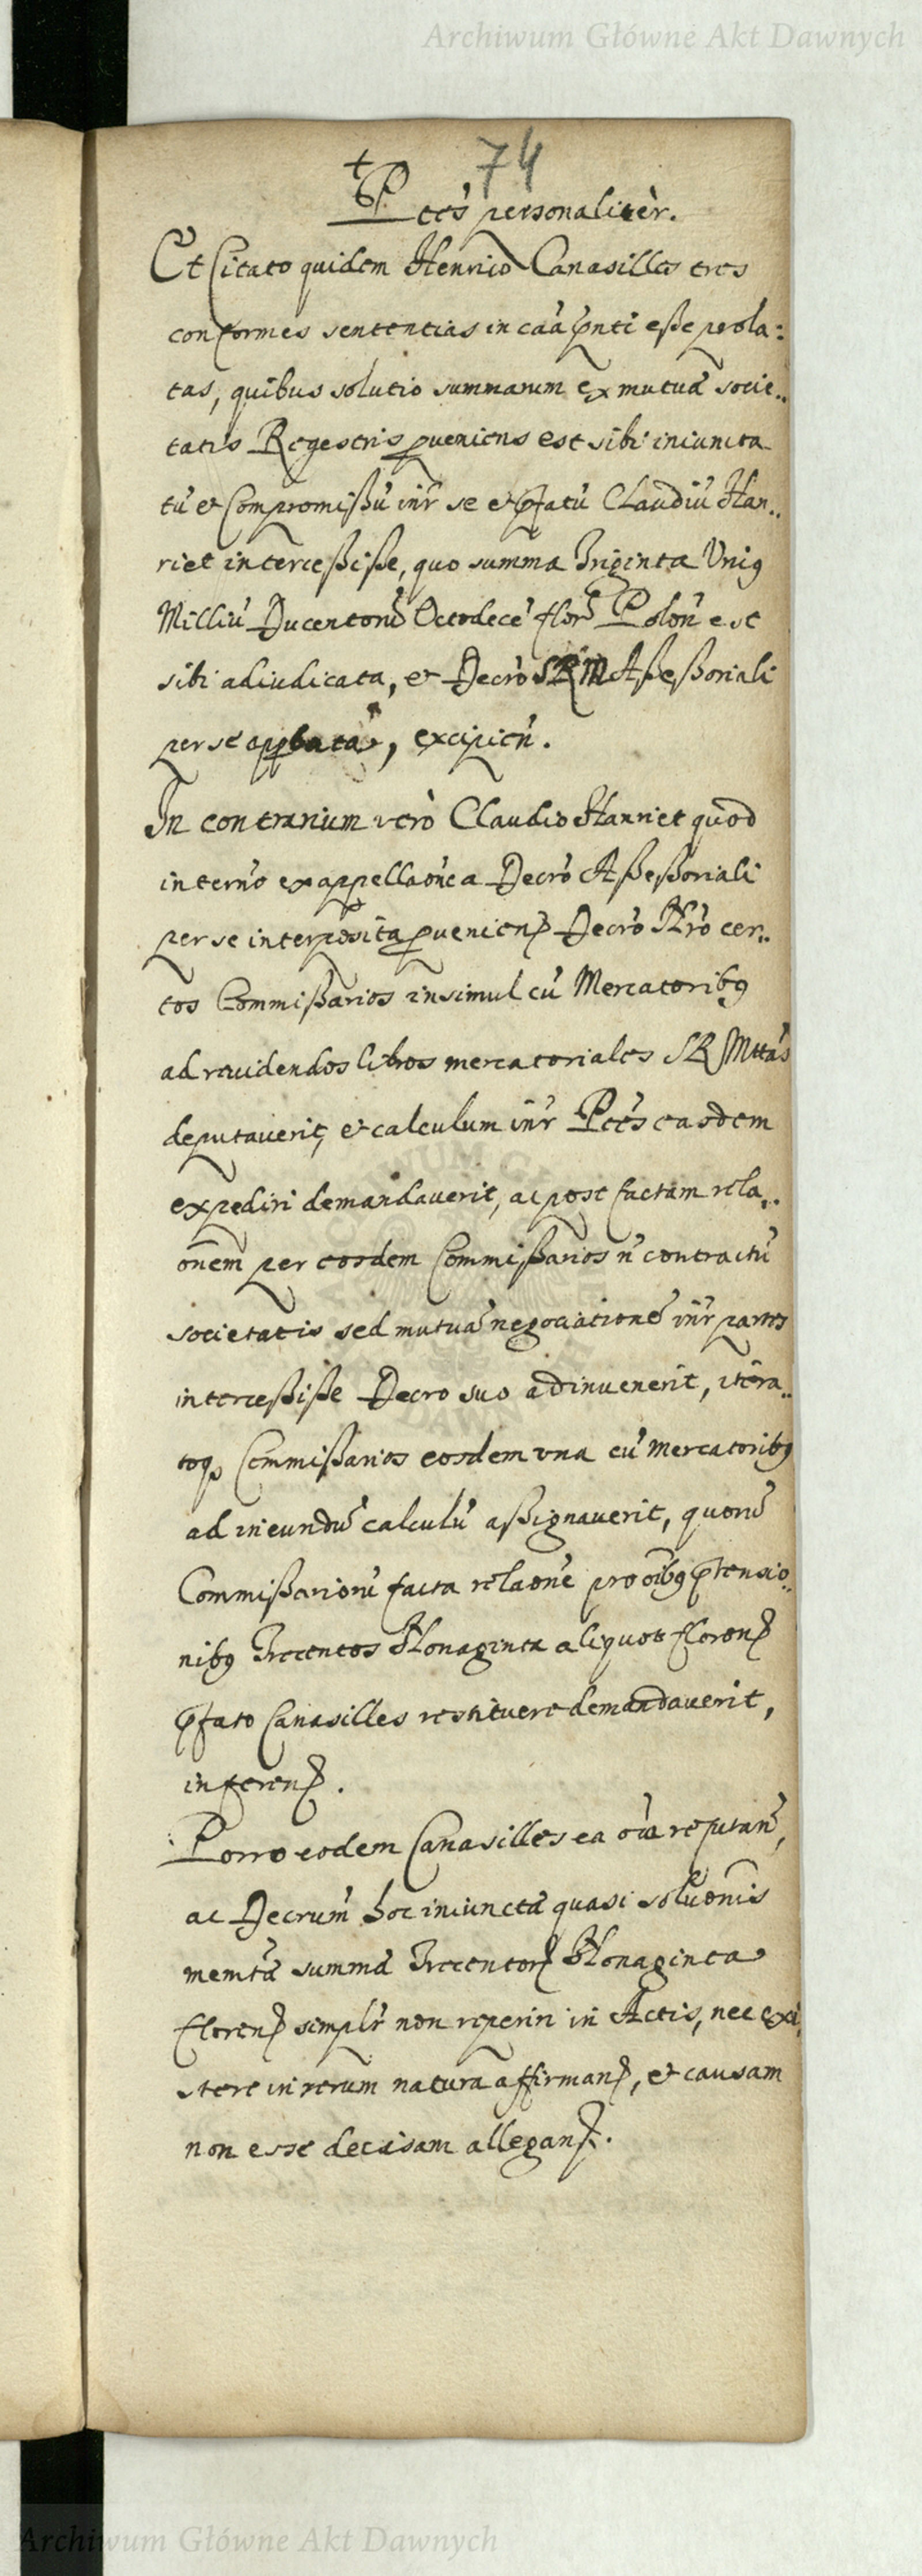 Archiwum Główne Akt Dawnych
74
Ptes personaliter.
Et Citato quidem Henrico Canasilles tres
conformes sententias in caa pnti esse prola:
tas, quibus solutio summarum ex mutua socie..
tatis Regestris pveniens est sibi iniuncta
tū et Compromissū inr se et pfatū Claudiū Han..
riet intercessisse, quo summa Triginta Unig
Milliū Ducentorū Octodecē flor Polon est
sibi adiudicata, et Decro SRM Assessoriali
per se apbata, excipien.
In contrarium vero Claudio Hanriet quod
interno ex appellaone a Decro Assessoriali
per se interposita pvenien Decro Nro cer..
tos Commissarios insimul cū Mercatoribg
ad revidendos libros mercatoriales SR Mttas
deputaverit, et calculum inr Ptes easdem
expediri demandaverit, ac post factam rela..
onem per eosdem Commissarios n contractū
societatis sed mutuā negociationē inr partes
intercessisse Decro suo adinvenerit, itera..
toq Commissarios eosdem una cū mercatoribg
ad ineundū calculū assignaverit, quorū
Commissariorū facta relaone pro oibg ptensio..
nibg Trecentos Nonaginta aliquot floren
pfato Canasilles restituere demandaverit,
inferen.
Porro eodem Canasilles ea oia refutan,
ac Decrum hoc iniunctā quasi soluonis
memtā summā Trecentor Nonaginta
floren simplr non reperiri in Actis, nec exi,
stere in rerum natura affirman, et causam
non esse decisam allegan.
Archiwum Główne Akt Dawnych